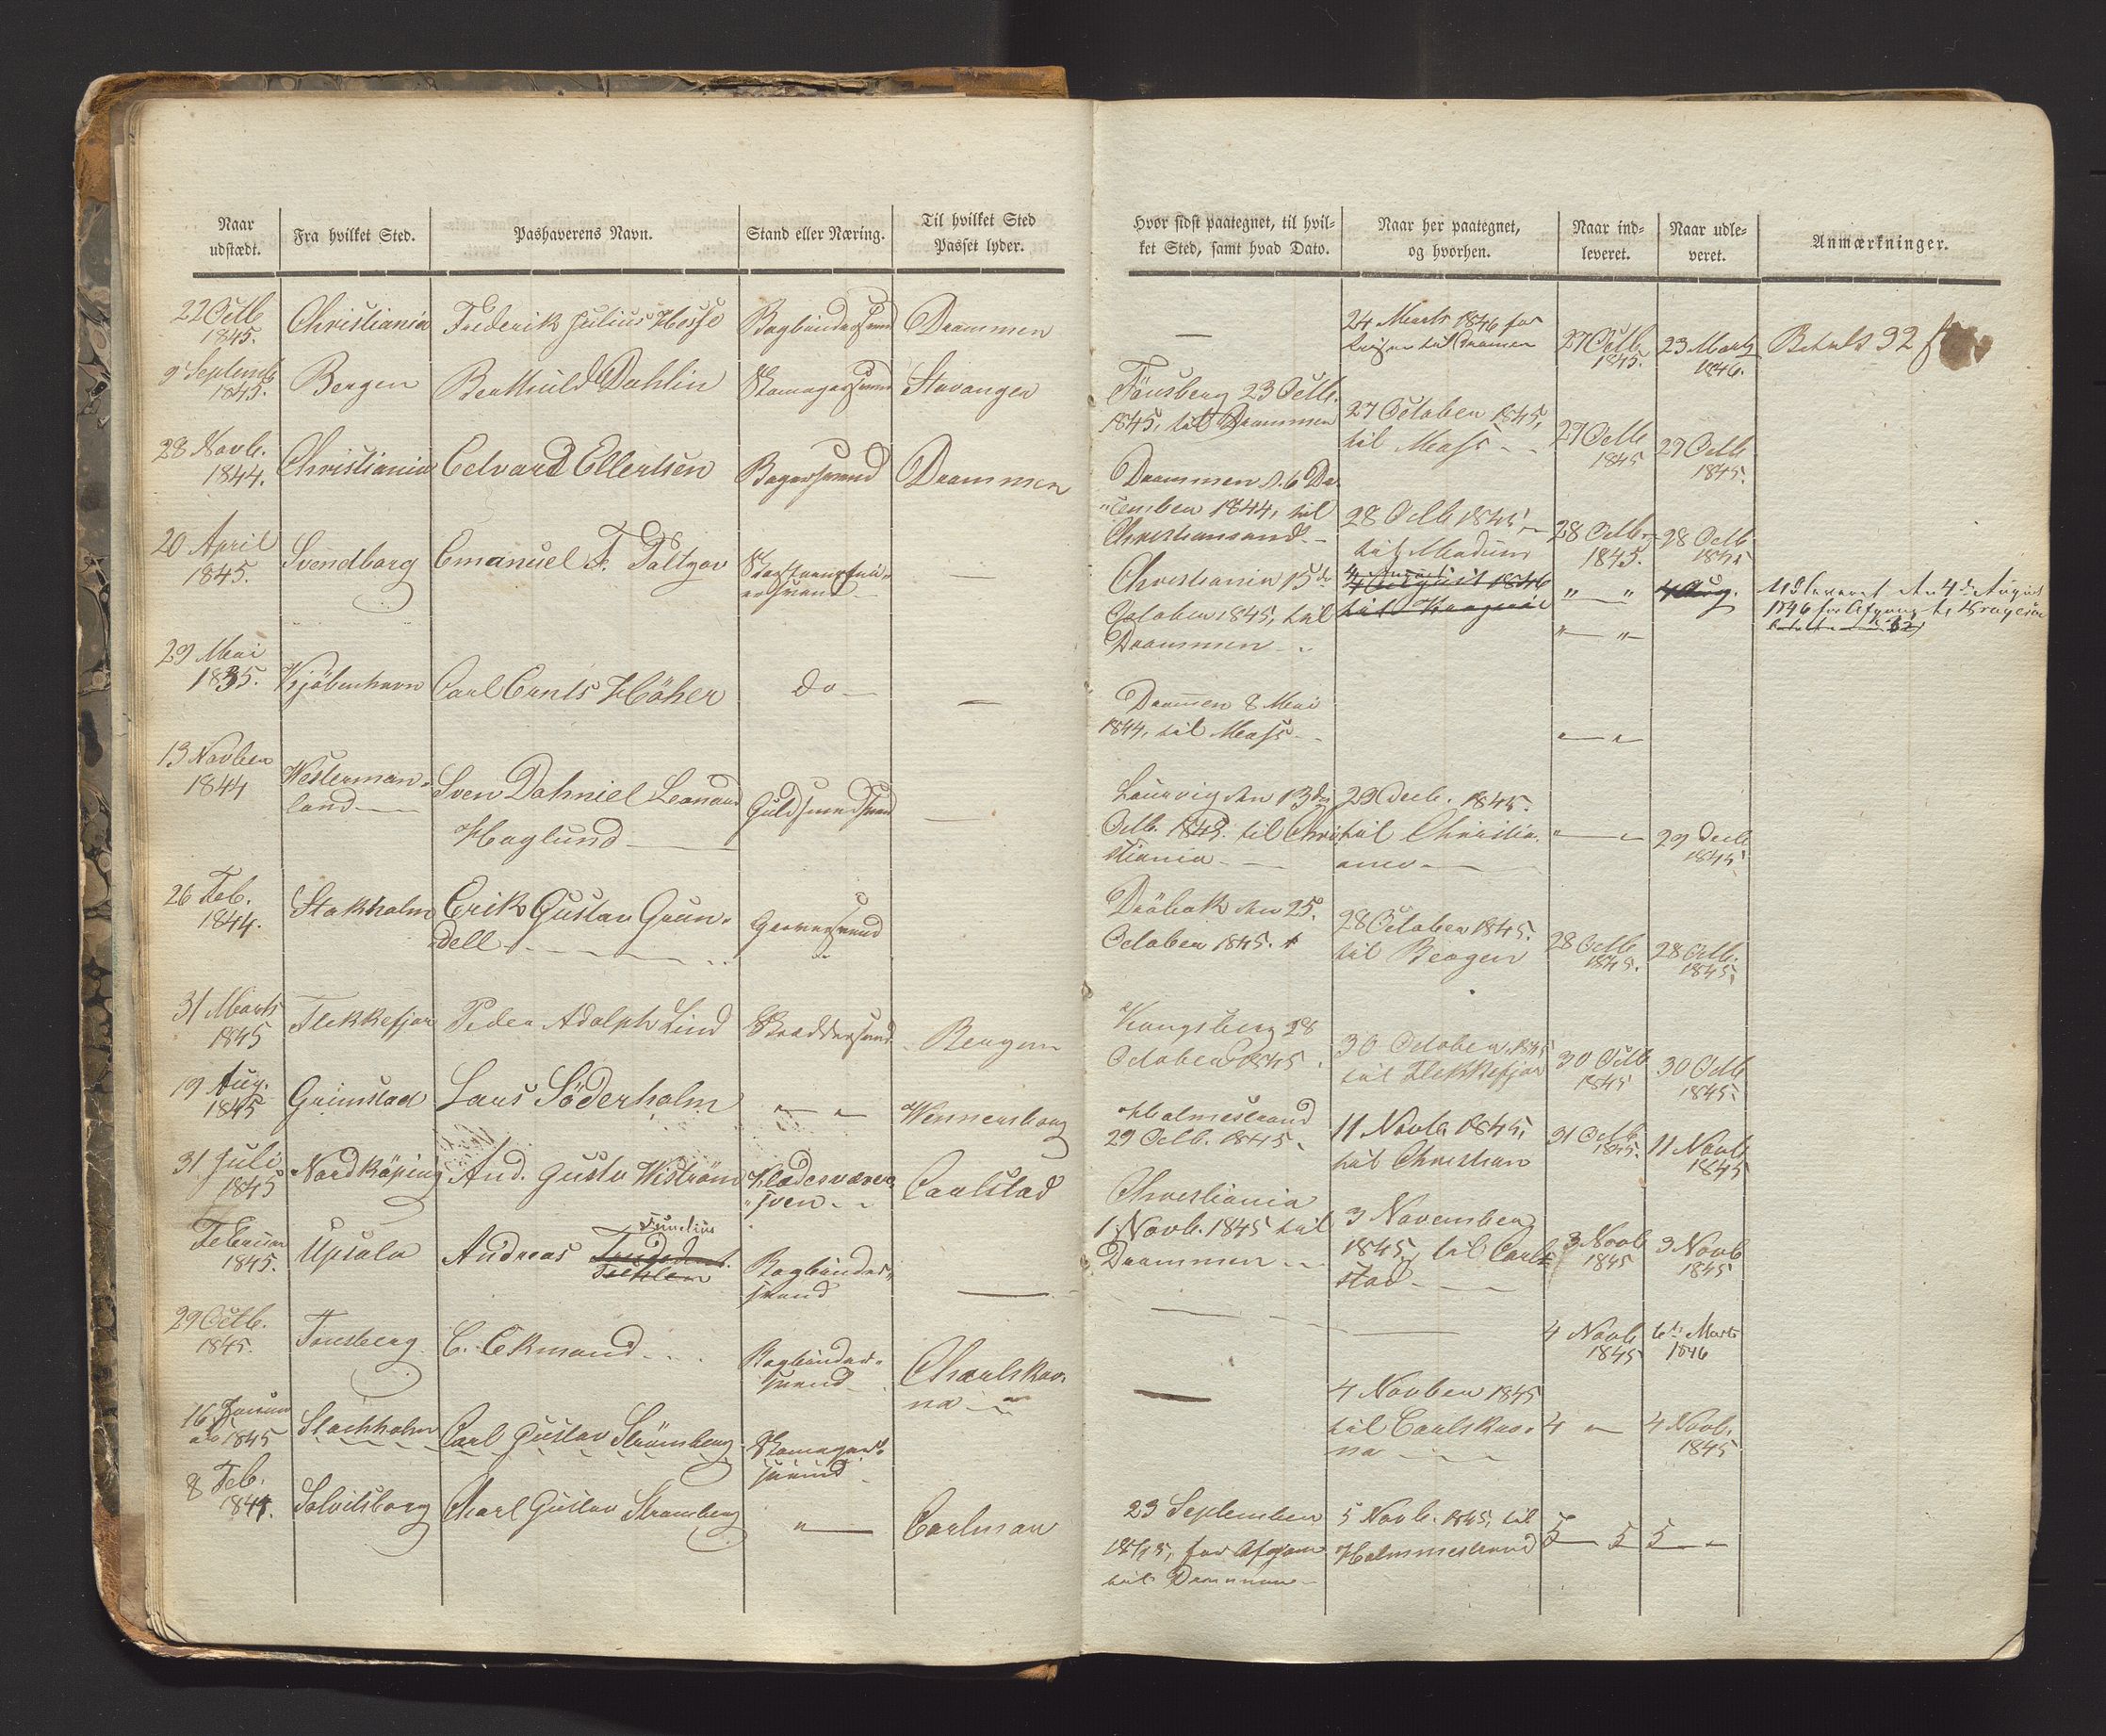 Naar udstædt.
Fra hvilket Sted.
Pashaverens Navn.
Stand eller Næring.
Til hvilket Sted Passet lyder.
Hvor sidst paategnet, til hvil-
ket Sted, samt hvad Dato.
Naar her paategnet,
og hvorhen.
Naar ind-
leveret.
Naar udle-
veret.
Anmærkninger.
22 Octb 1845. Christiania Frederik Julius Hesse Bogbindersvend Drammen
— 24 Marts 1846 for
til Dramen 27 Octb 1845. 23 Marts 1846. Betalt 32
9 Septemb 1845. Bergen Berthuld Dahlin Skomagersvend Stavanger
Tönsberg 23 Octb.
1845, til Drammen 27 October 1845,
til Moss 27 Octb 1845 27 Octb 1845.
28 Novb. 1844. Christiania Edvard Ellertsen Bagersvend Drammen
Drammen d. 6 De-
cember 1844, til
Christiansand 28 Octb 1845
til Modum 28 Octb. 1845. 28 Octb 1845
20 April 1845. Svendborg Emanuel F. —
Christiania 15de
October 1845, til
Drammen 4 August 1846
til Kragerøe " — " 4 Aug. Udleveret den 4de August
1846 for Afgang til Kragerøe
29 Mai 1835. Kjöbenhavn Carl Ernts Höher do — —
Dramen 8 Mai
1844, til Moss
13 Novber 1844 Westerman-
land Sven Dahniel Leonard
Haglund Guldsmedsvend —
Laurvig den 13de
Octb. 1845. til Chri-
stiania 29 Decb. 1845.
til Christia-
29 Decb 1845
26 Feb. 1844. Stokholm Erik Gustav Grun-
dell Garversvend
Dröbak den 25.
October 1845. 28 October 1845.
til Bergen 28 Octb 1845. 28 Octb. 1845.
31 Marts 1845 Flekkefjor Peder Adolph Lind Skreddersvend Bergen
Kongsberg 28
October 1845. 30 October 1845
til Flekkefjor 30 Octb 1845 30 Octb 1845.
19 Aug. 1845 Grimstad Lars Söderholm " — " Wennersborg
Holmestrand
29 Octb. 1845. 11 Novb. 1845,
til Christian 31 Octb. 1845. 11 Novb 1845
31 Juli 1845 Nordköping And. Gustv Wiström Klædesvæver-
sven Carlstad
Christiania
1 Novb. 1845 til
Drammen 3 November
1845, til Carl-
stad 3 Novb 1845 3 Novb 1845
Februar 1845. Upsala Andreas
Bogbinder-
svend —
4 Novb 1845 6te Marts 1846
29 Octb. 1845. Tonsberg C. Ekmand Bogbinder-
svend Charlskro-
na
— 4 Novber 1845
til Carlskro-
na 4 — 4 Novb. 1845
16 Januar 1845 Stochholm Carl Gustav Strömberg Skomager-
svend
8 Feb. 1841. Solvitsborg Charl Gustav Stromberg " — Carlman
23 September
1845, for Afgan
til Drammen 5 Novb. 1845, til
Holmmestrand 5 — 5 5 —